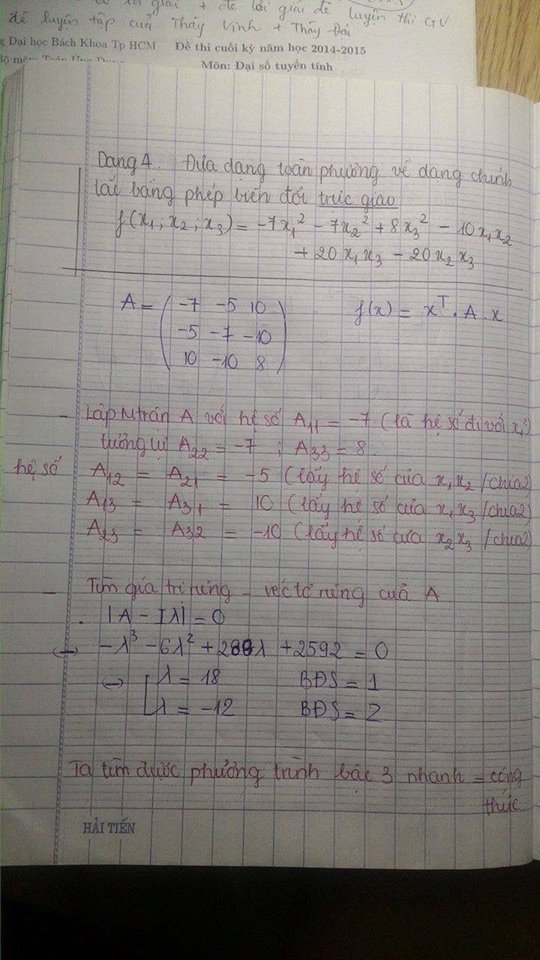 đề luyện tập của Thầy Vinh + Thầy Đải
Đại học Bách Khoa Tp HCM Đề thi cuối kỳ năm học 2014-2015
Môn: Đại số tuyến tính
Dạng 4. Đưa dạng toàn phương về dạng chính
tắc bằng phép biến đổi trực giao
f(x₁; x₂; x₃) = -7x₁² - 7x₂² + 8x₃² - 10x₁x₂
+ 20x₁x₃ - 20x₂x₃
A = ( -7 -5 10 f(x) = xᵀ. A. x
-5 -7 -10
10 -10 8 )
- Lập Mtrận A với hệ số A₁₁ = -7 (là hệ số đi với x₁²)
tương tự A₂₂ = -7 ; A₃₃ = 8
hệ số A₁₂ = A₂₁ = -5 (lấy hệ số của x₁x₂ /chia2)
A₁₃ = A₃₁ = 10 (lấy hệ số của x₁x₃ /chia2)
A₂₃ = A₃₂ = -10 (lấy hệ số của x₂x₃ /chia2)
- Tìm giá trị riêng - véctơ riêng của A
. |A - Iλ| = 0
↔ -λ³ - 6λ² + 288λ + 2592 = 0
↔ [ λ = 18 BĐS = 1
λ = -12 BĐS = 2
Ta tìm được phương trình bậc 3 nhanh = công
thức
HẢI TIẾN